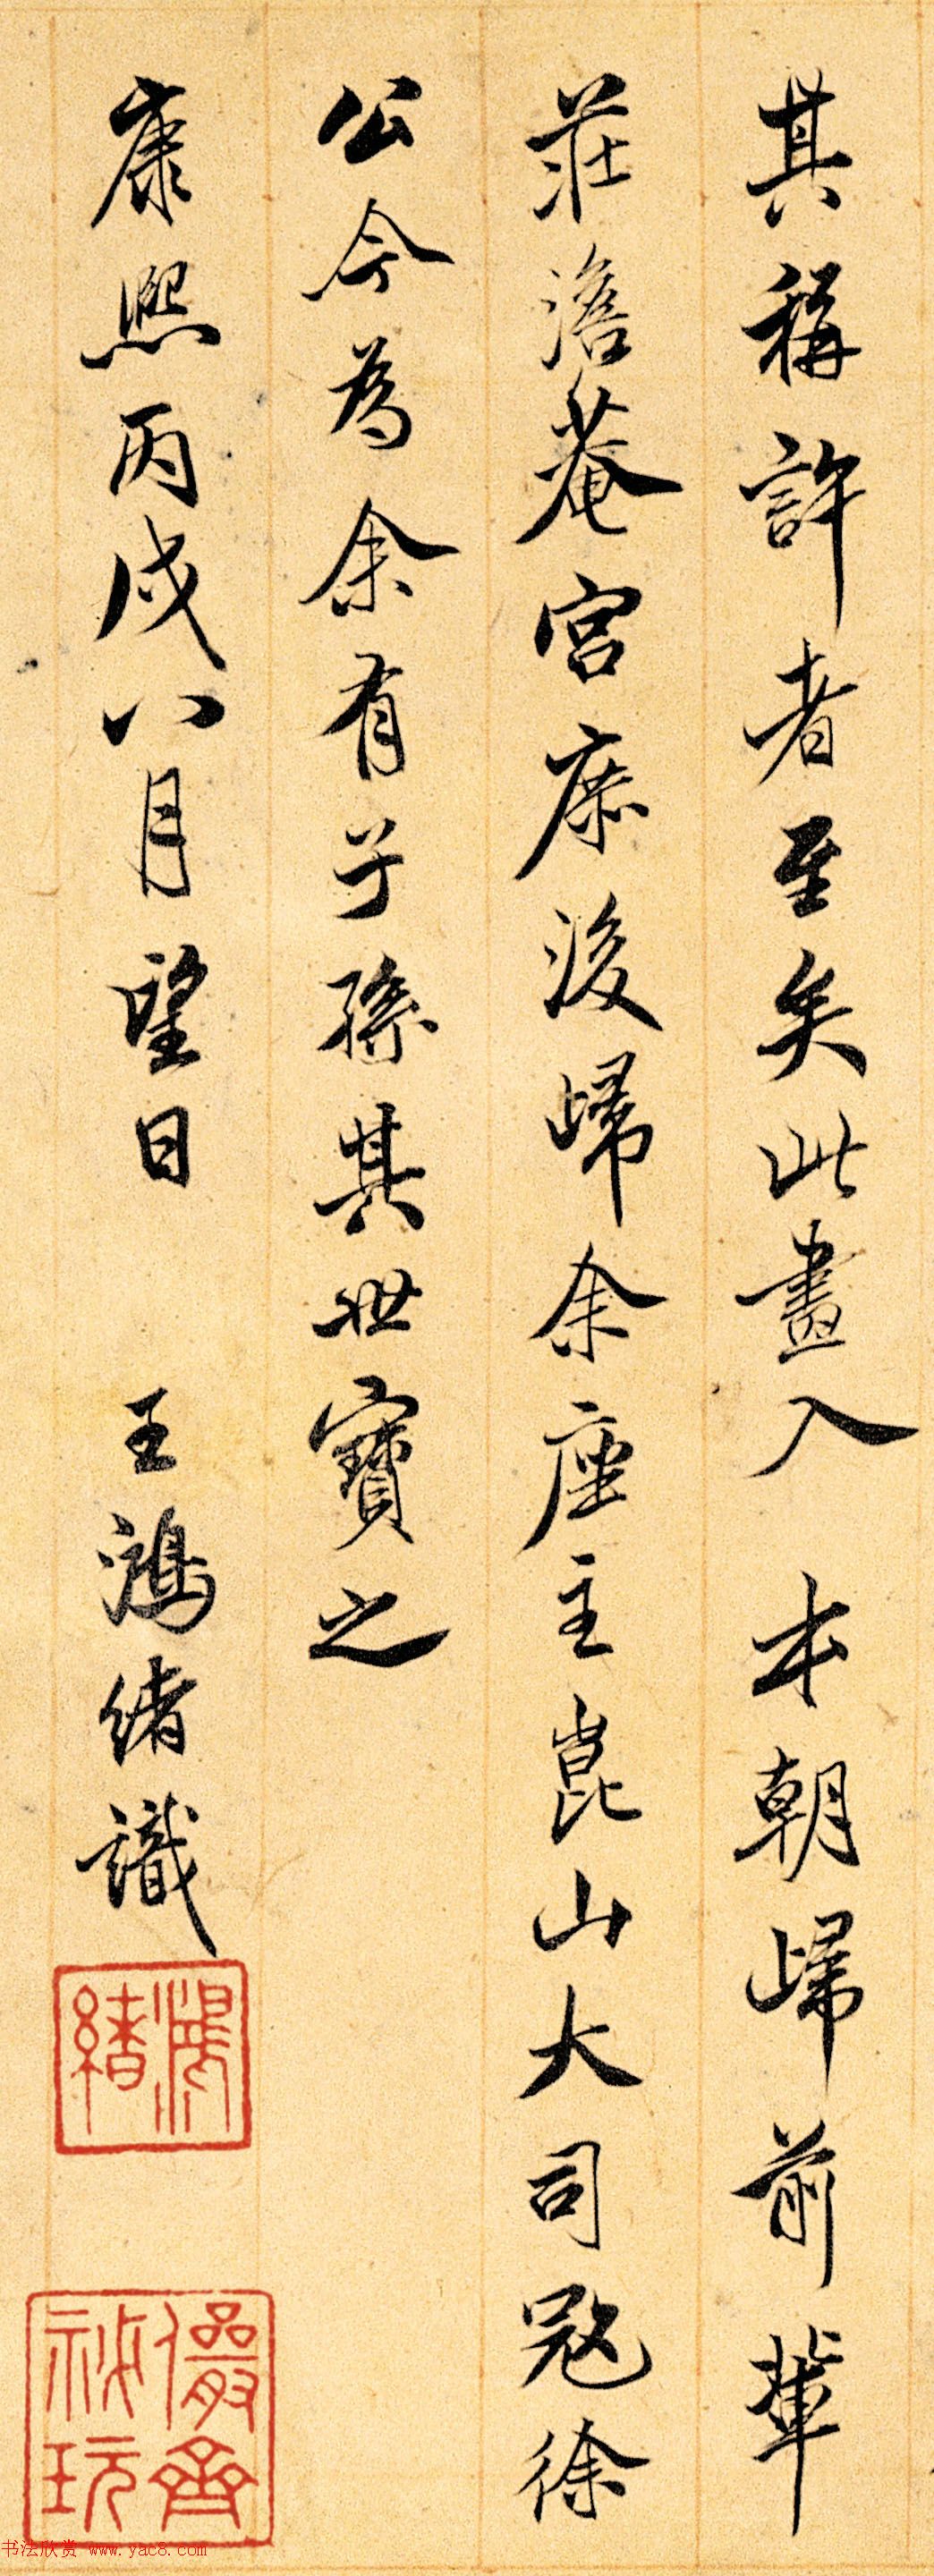 其稱許者至矣此畫入　本朝歸前輩
莊澹菴宮庶後歸余座主崑山大司寇徐
公今為余有子孫其世寶之
康熙丙戌八月望日　王鴻緒識
鴻緒
儼齋秘玩
书法欣赏 www.yac8.com